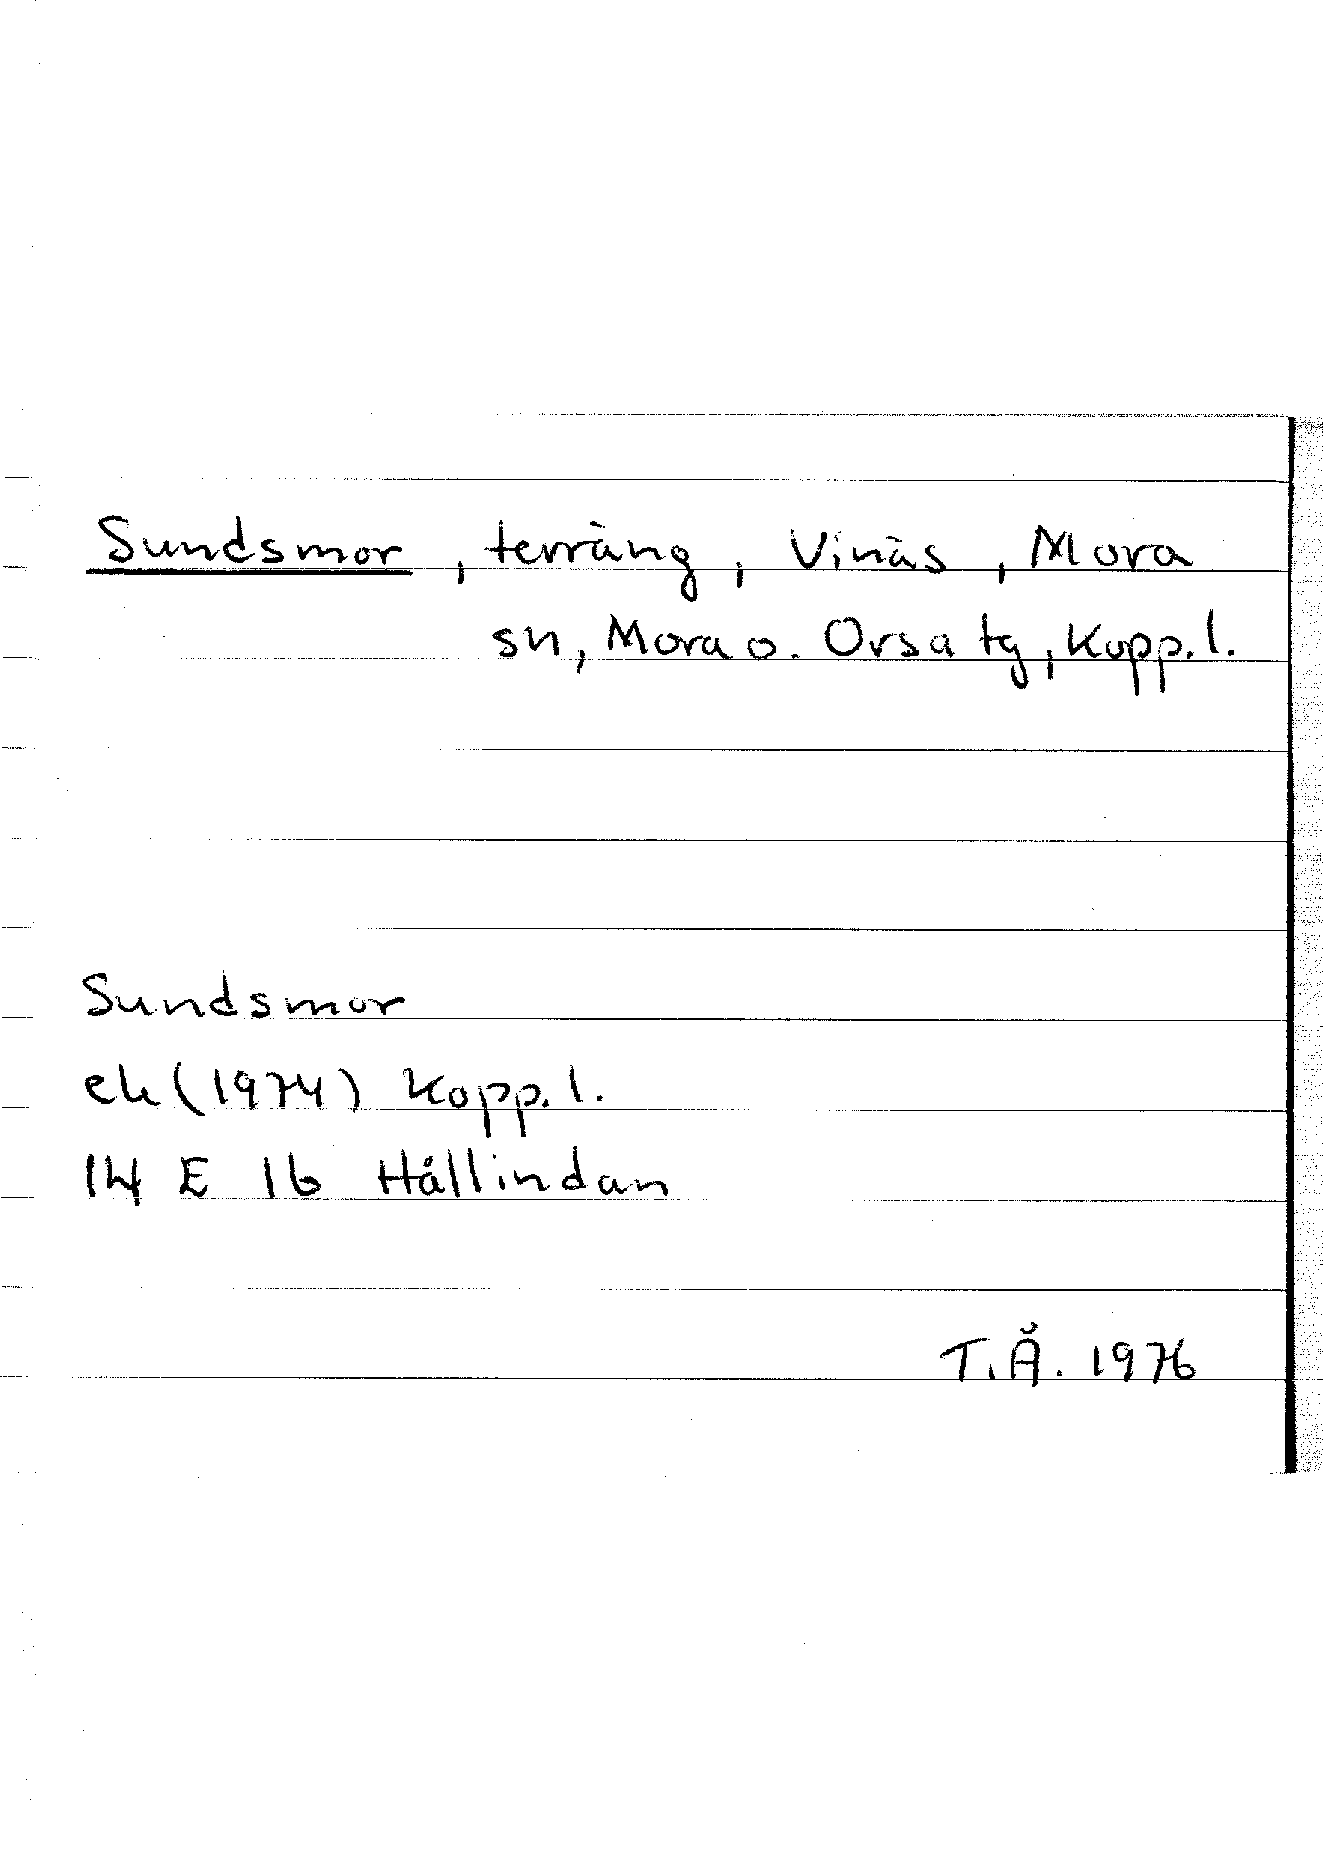 Sundsmor, terräng, Vinäs, Mora
sn, Mora o. Orsa tg, Kopp. l.
Sundsmor
ek (1974) Kopp. l.
14 E 1b Hållindan
T.Å. 1976